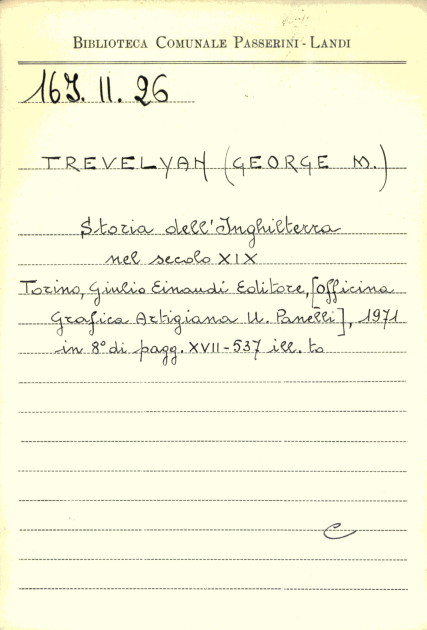 BIBLIOTECA COMUNALE PASSERINI-LANDI
16J. II. 26
TREVELYAN (GEORGE M.)
Storia dell'Inghilterra
nel secolo XIX
Torino, Giulio Einaudi Editore, [Officina
Grafica Artigiana U. Panelli], 1971
in 8° di pagg. XVII-537 ill. to
C